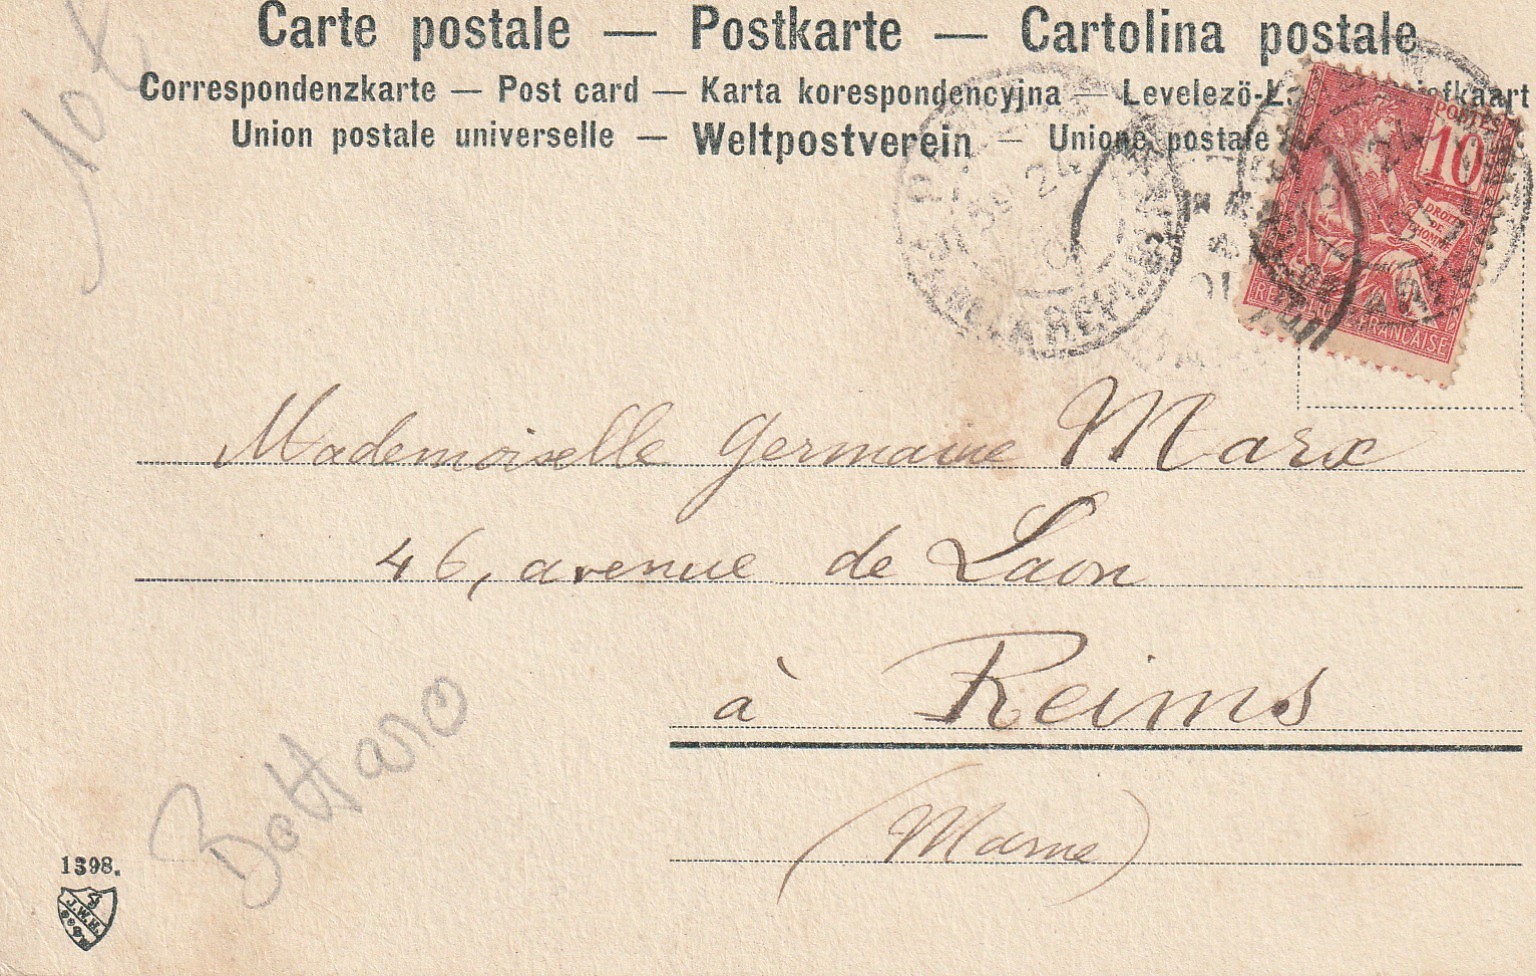 Carte postale — Postkarte — Cartolina postale
Correspondenzkarte — Post card — Karta korespondencyjna — Levelezö-
Union postale universelle — Weltpostverein — Unione postale
POSTES
10
DROITS
DE
L'HOMME
FRANÇAISE
Mademoiselle Germaine Marx
46, avenue de Laon
à Reims
(Marne)
Bottaro
1398.
J.W.H.